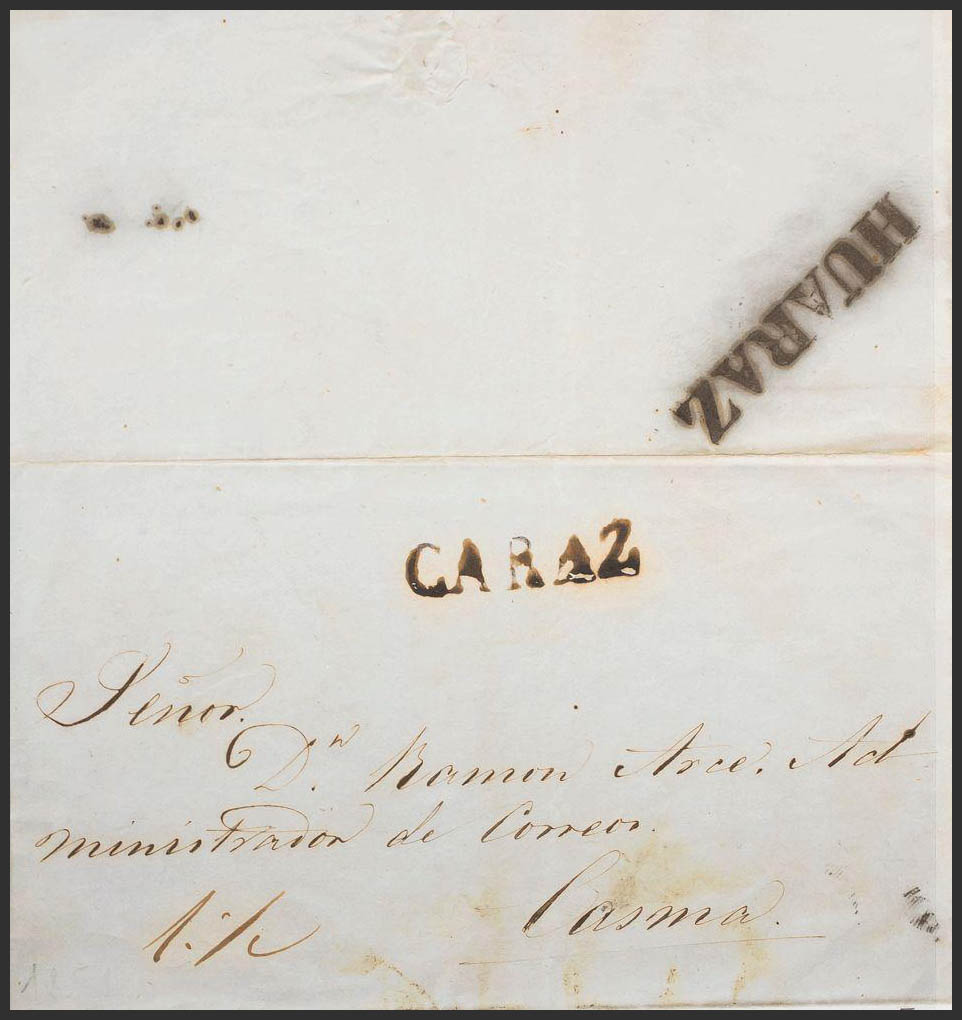 HUARAZ
CARAZ
Señor.
Dn. Ramon Arce. Ad
ministrador de Correos.
Casma.